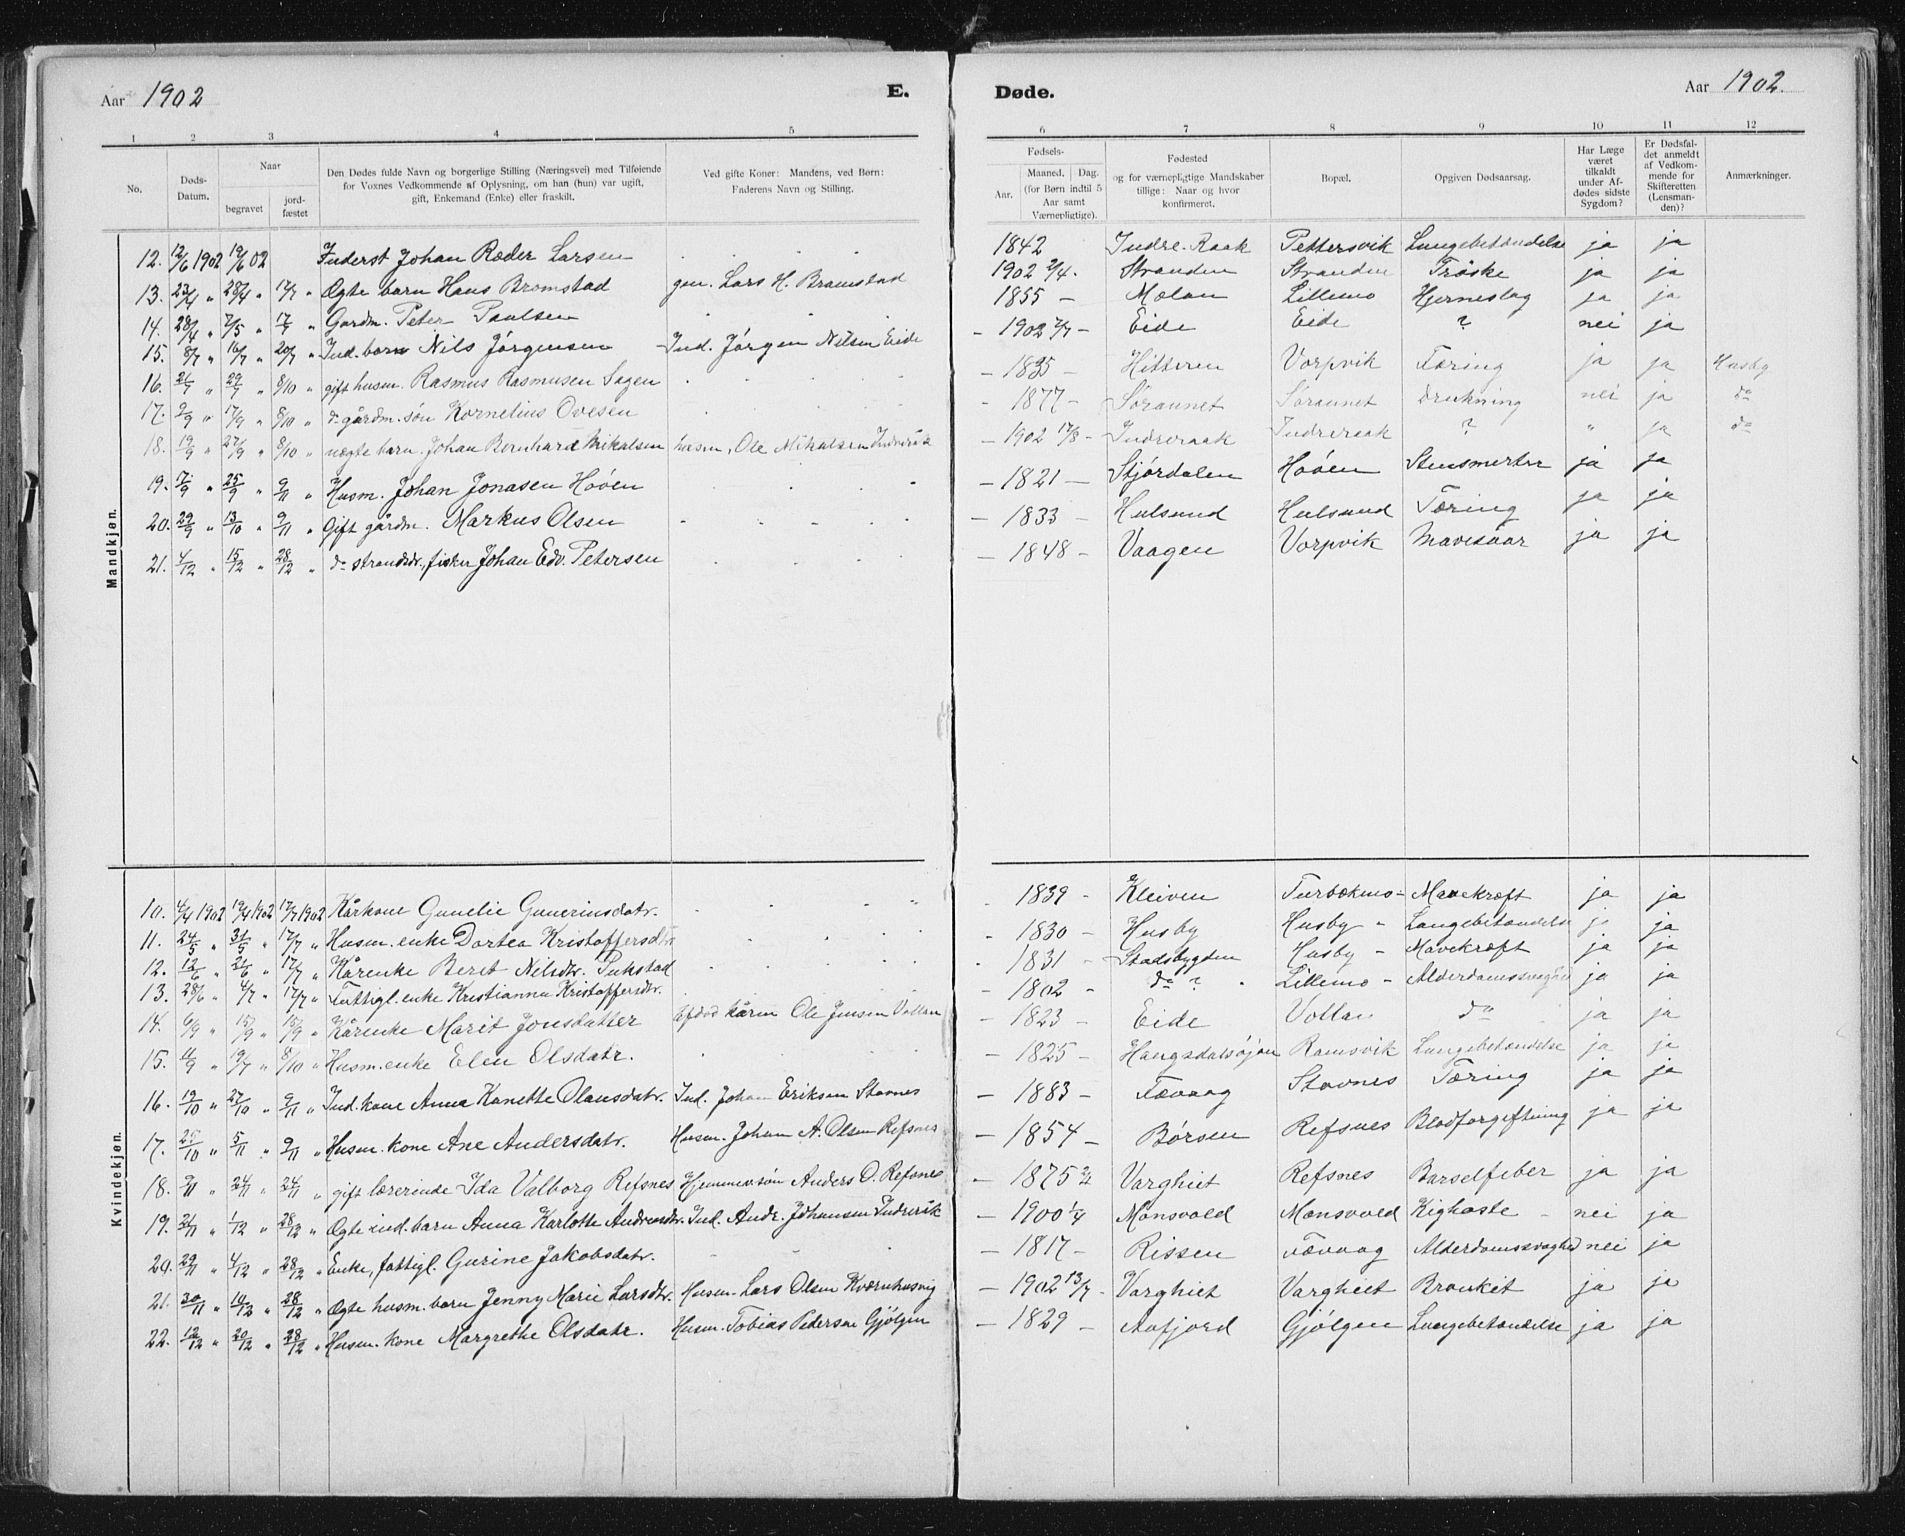 Aar 1902 E.
Døde. Aar 1902.
1 2 3 4 5
6 7 8 9 10 11 12
No.
Døds-Datum.
Naar
begravet
jord-fæstet
Den Dødes fulde Navn og borgerlige Stilling (Næringsvei) med Tilføiende
for Voxnes Vedkommende af Oplysning, om han (hun) var ugift,
gift, Enkemand (Enke) eller fraskilt.
Ved gifte Koner: Mandens, ved Børn:
Faderens Navn og Stilling.
Fødsels-
Aar.
Maaned. Dag.
(for Børn indtil 5
Aar samt
Værnepligtige).
Fødested
og for værnepligtige Mandskaber
tillige: Naar og hvor
konfirmeret.
Bopæl.
Opgiven Dødsaarsag.
Har Læge
været
tilkaldt
under Af-
dødes sidste
Sygdom?
Er Dødsfal-
det anmeldt
af Vedkom-
mende for
Skifteretten
(Lensman-
den)?
Anmærkninger.
Mandkjøn.
12. 12/6 1902 19/6 02 Inderst Johan Ræder Larsen 1842 Indre. Raak Pettersvik Lungebetændelse ja ja
13. 23/4 " 28/4 " 17/7 " Ægte barn Hans Bromstad gm. Lars H. Bromstad 1902 2/4. Stranden Stranden Trøske ja ja
14. 28/4 " 7/5 " 17/7 " Gardm. Peter Paulsen 1855 - Molan Lillemo Hjerneslag ja ja
15. 8/7 " 16/7 " 20/7 " Ind. barn Nils Jørgensen Ind. Jørgen Nilsen Eide - 1902 7/7 - Eide Eide ? nei ja
16. 21/7 " 29/7 " 8/10 " gift husm. Rasmus Rasmusen Sagen - 1835 - Hitteren Vorpvik Tæring ja ja Husby
17. 2/9 " 17/9 " 8/10 " do gårdm. søn Kornelius Ovesen - 1877 - Sørannet Sørannet Drukning nei ja do
18. 19/9 " 27/9 " 8/10 " uægte barn. Johan Bernhard Mikalsen husm. Ole Mikalsen - 1902 17/8 - Indreraak Indreraak ? " ja do
19. 7/9 " 25/9 " 9/11 " Husm. Johan Jonasen Hoøen - 1821 - Stjørdalen Hoøen Stensmerter ja ja
20. 29/9 " 13/10 " 9/11 " Gift gårdm. Markus Olsen - 1833 - Hulsund Hulsund Tæring ja ja
21. 4/12 " 15/12 " 28/12 " do strandsdr., fisker Johan Edv. Petersen - 1848 - Vaagen Vorpvik Mavesaar ja ja
Kvindekjøn.
10. 4/4 1902 19/4 1902 17/7 1902 Kårkone Gunelie Guneriusdatr. - 1839 - Kleiven - Mavekræft ja ja
11. 24/5 " 31/5 " 17/7 " Husm. enke Dortea Kristoffersdtr - 1830 - Husby Husby - Lungebetændelse ja ja
12. 12/6 " 21/6 " 17/7 " Kårenke Berit Nilsdtr. Pukstad - 1831 - Stadsbygden Husby - Mavekræft ja ja
13. 28/6 " 4/7 " 17/7 " Fattigl. enke Kristianna Kristoffersdtr. - 1802 - do ? Lillemo - ja ja
14. 6/9 " 15/9 " 15/9 " Kårenke Marit Jonsdatter Afdød kårm Ole Jensen Vollan - 1823 - Eide Vollan do ja ja
15. 4/9 " 19/7 " 8/10 " Husm. enke Elen Olsdatr. - 1825 - Ramsvik Lungebetændelse ja ja
16. 19/10 " 27/10 " 9/11 " Ind. kone Anna Kanette Olausdatr. Ind. Johan Eriksen Stavnes - 1883 - Fævaag Stavnes Tæring ja ja
17. 25/10 " 5/11 " 9/11 " Husm. kone Ane Andersdatr. Husm. Johan A. Olsen Refsnes - 1854 - Børsen Refsnes Blodforgiftning ja ja
18. 9/11 " 24/11 " 24/11 " gift lærerinde Ida Valborg Refsnes Hjemmeværsøn Anders O. Refsnes - 1875 Varghiet Refsnes Barselfeber ja ja
19. 21/11 " 1/12 " 28/12 " Ægte ind. barn Anna Karlotte Andreasdtr. Ind. Andr. Johansen - 1900 1/4 Monsvold Monsvold Kighoste - nei ja
20. 29/11 " 4/12 " 28/12 " Enke, fattigl. Gurine Jakobsdatr. - 1817 - Rissen Fævaag Alderdomssvaghed nei ja
21. 30/11 " 10/12 " 28/12 " Ægte husm. barn Jenny Marie Larsdtr. Husm. Lars Olsen Kværnhusvig - 1902 13/7 - Varghiet Varghiet Bronkit ja ja
22. 12/12 " 20/12 " 28/12 " Husm. kone Margrethe Olsdatr. Husm. Tobias Pedersen Gjølgen - 1829 - Aafjord Gjølgen Lungebetændelse ja ja